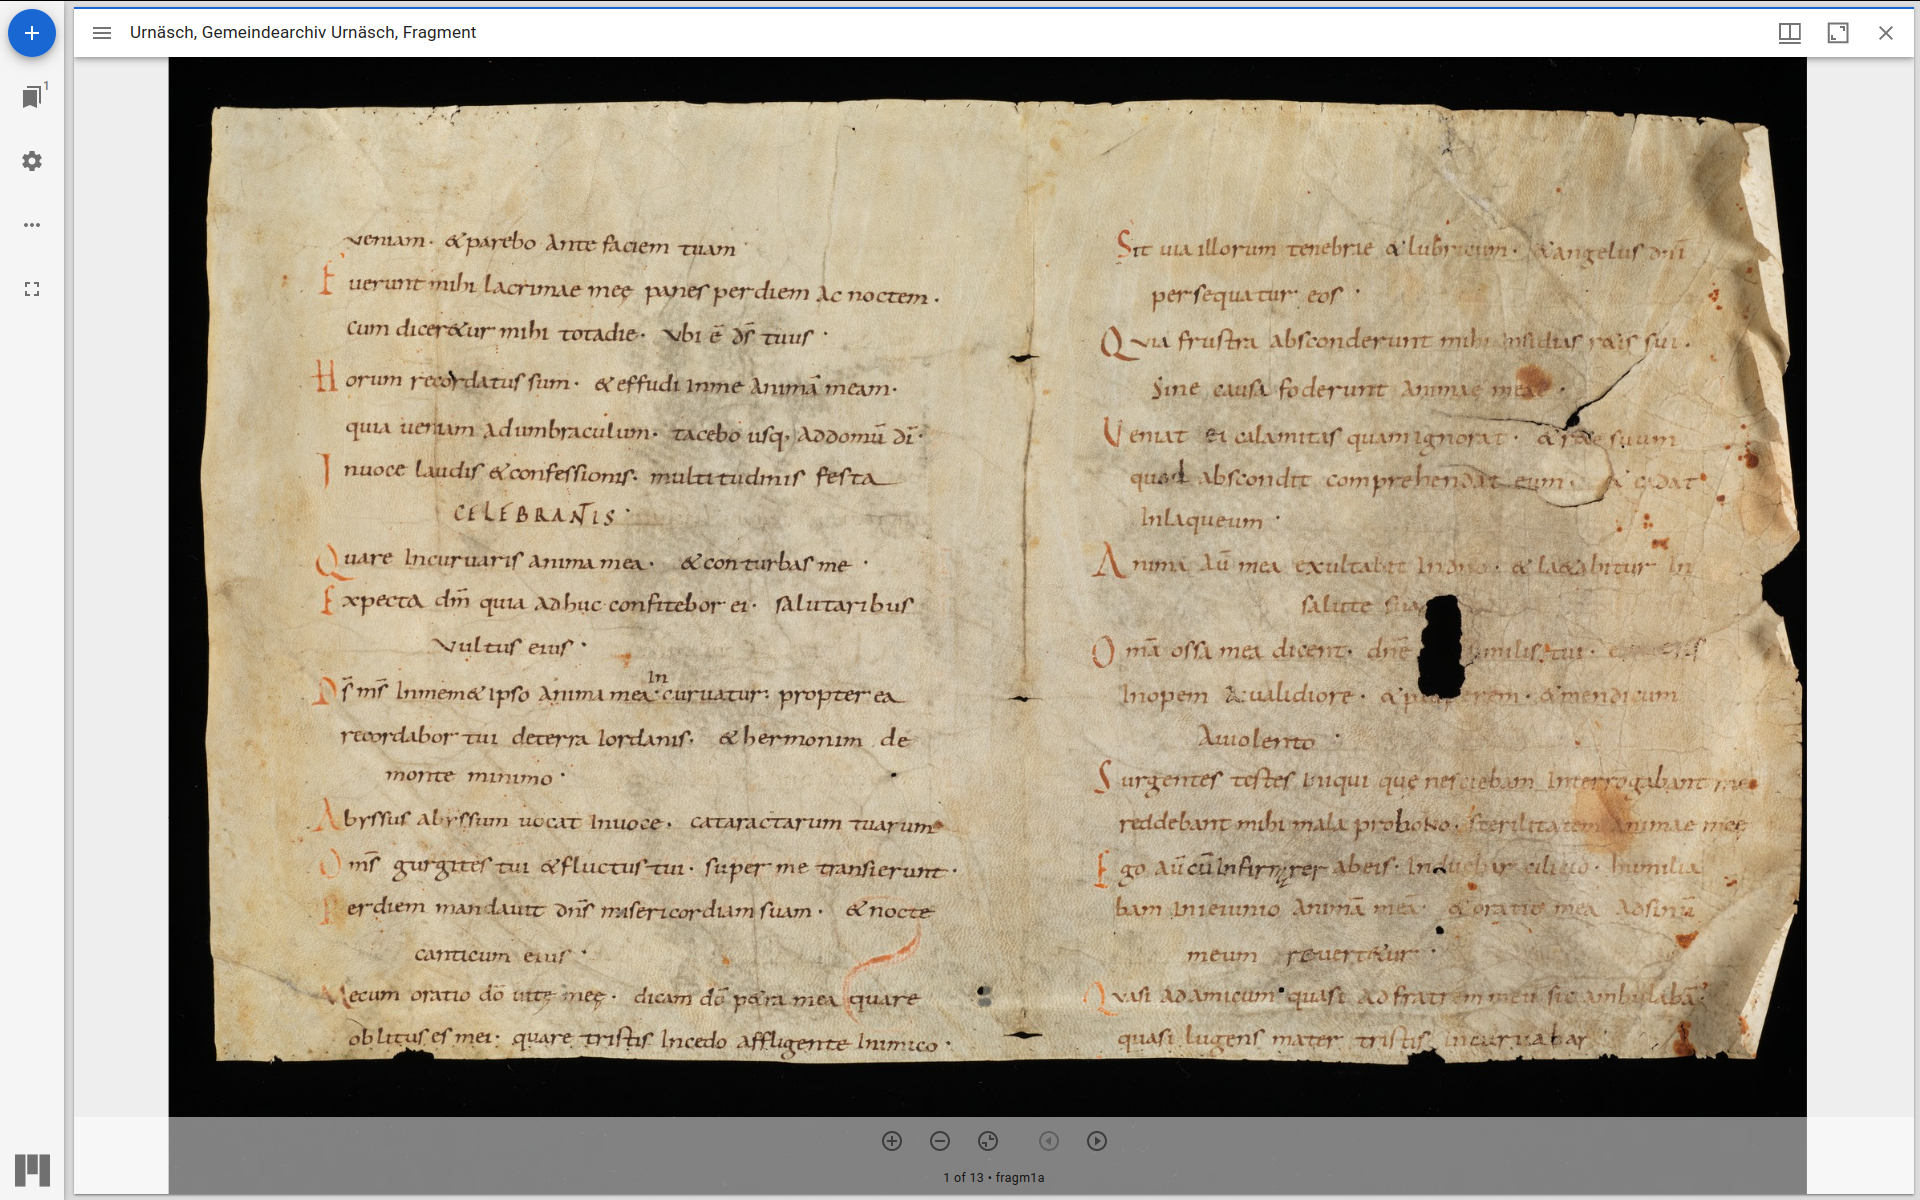 Urnäsch, Gemeindearchiv Urnäsch, Fragment
1
veniam · & parebo ante faciem tuam
Fuerunt mihi lacrimae meę panes per diem ac noctem ·
cum diceretur mihi tota die · Vbi ē ds̄ tuus ·
Horum recordatus sum · & effudi in me animā meam ·
quia ueniam ad umbraculum · tacebo usq, ad domū dī ·
In uoce laudis & confessionis · multitudinis festa
CELEBRANTIS ·
Quare Incuruaris anima mea · & conturbas me ·
Expecta dm̄ quia adhuc confitebor ei · salutaribus
vultus eius ·
Ds̄ ms̄ In memet ipso anima mea Incuruatur · propterea
recordabor tui de terra Iordanis · & hermonim de
monte minimo ·
Abyssus abyssum uocat In uoce · cataractarum tuarum
Oms̄ gurgites tui & fluctus tui · super me transierunt ·
Per diem mandauit dns̄ misericordiam suam · & nocte
canticum eius ·
Mecum oratio dō uitę meę · dicam dō petra mea quare
oblitus es mei · quare tristis Incedo affligente Inimico ·
Sit uia illorum tenebrae & lubricum · & angelus dnī
persequatur eos ·
Quia frustra absconderunt mihi insidias retis sui ·
Sine causa foderunt animae meae ·
Veniat ei calamitas quam ignorat · & rete suum
quod abscondit comprehendat eum · & cadat
In laqueum ·
Anima aū mea exultabit In dn̄o · & laetabitur In
salute sua
Omā ossa mea dicent · dn̄e similis tui ·
Inopem a ualidiore · & pauperem · & mendicum
a uiolento ·
Surgentes testes iniqui quę nesciebam Interrogabant me
reddebant mihi mala pro bono · sterilitatem animae meę
Ego aū cū Infirmarer ab eis · Induebar cilicio · humilia
bam In ieiunio animā meā · & oratio mea ad sinū
meum reuertetur ·
Quasi ad amicum · quasi ad fratrem meū sic ambulabā ·
quasi lugens mater tristis incuruabar
1 of 13 • fragm1a